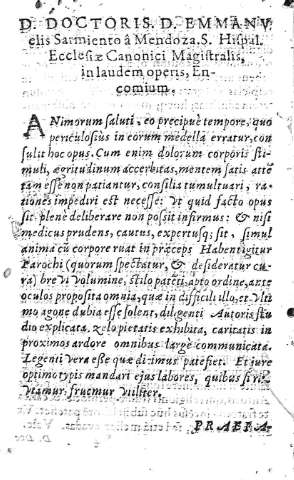 D. DOCTORIS. D. EMMANV
elis Sarmiento â Mendoza. S. Hispal.
Ecclesiæ Canonici Magistralis,
in laudem operis, En-
comium.
ANimorum saluti, eo precipuè tempore, quo
periculosius in eorum medella erratur, con
sulit hoc opus. Cum enim dolorum corporis sti-
muli, ægritudinum accerbitas, mentem satis atte̅
tam esse non patiantur, consilia tumultuari, ra-
tiones impediri est necesse: Vt quid facto opus
sit plenè deliberare non possit infirmus: & nisi
medicus prudens, cautus, expertusq; sit, simul
anima cũ corpore ruat in præceps Habent igitur
Parochi (quorum spectatur, & desideratur cu-
ra) breVi Volumine, stilo pateti, apto ordine, ante
oculos proposita omnia, quæ in difficili illo, et Vlti
mo agone dubia esse solent, diligenti Autoris stu
dio explicata, zelo pietatis exhibita, caritatis in
proximos ardore omnibus largè communicata.
Legenti Vera esse quæ dicimus patefiet. Et jure
optimo typis mandari ejus labores, quibus si ri-
tamur, fruemur Vtiliter.
PRAEFA-